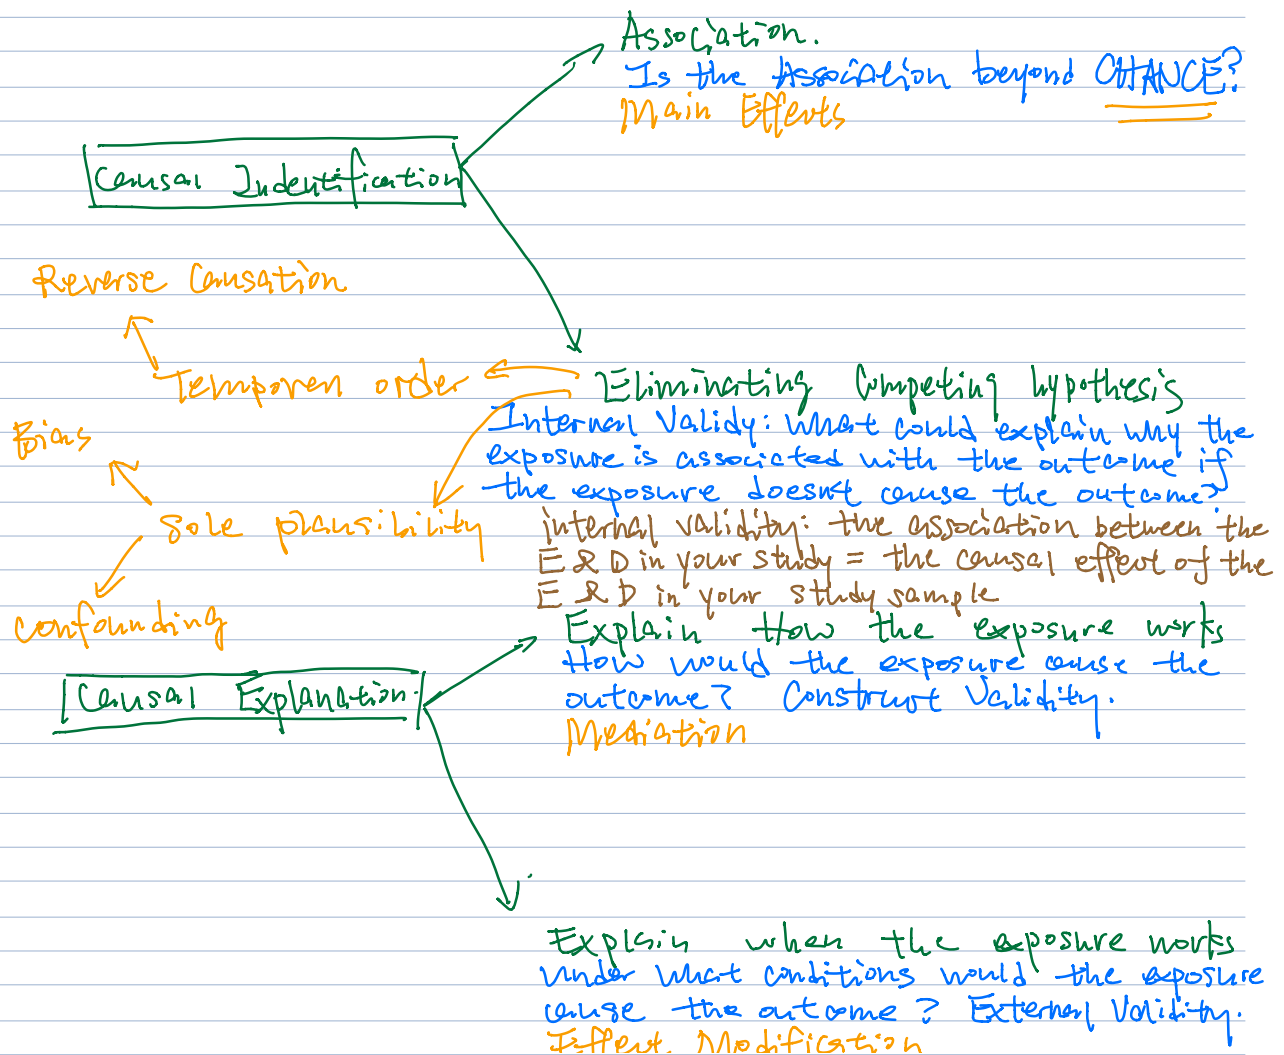 Association.
Is the Association beyond CHANCE?
Main Effects
Causal Indentification
Reverse Causation
Temporen order
Eliminating Competing hypothesis
Bias
Internal Validy: What could explain why the
exposure is associated with the outcome if
the exposure doesn't cause the outcome?
Sole plausibility
internal validity: the association between the
E & D in your study = the causal effect of the
E & D in your study sample
confounding
Explain How the exposure works
How would the exposure cause the
outcome? Construct Validity.
Mediation
Causal Explanation.
Explain when the exposure works
Under what conditions would the exposure
cause the outcome? External Validity.
Effect Modification